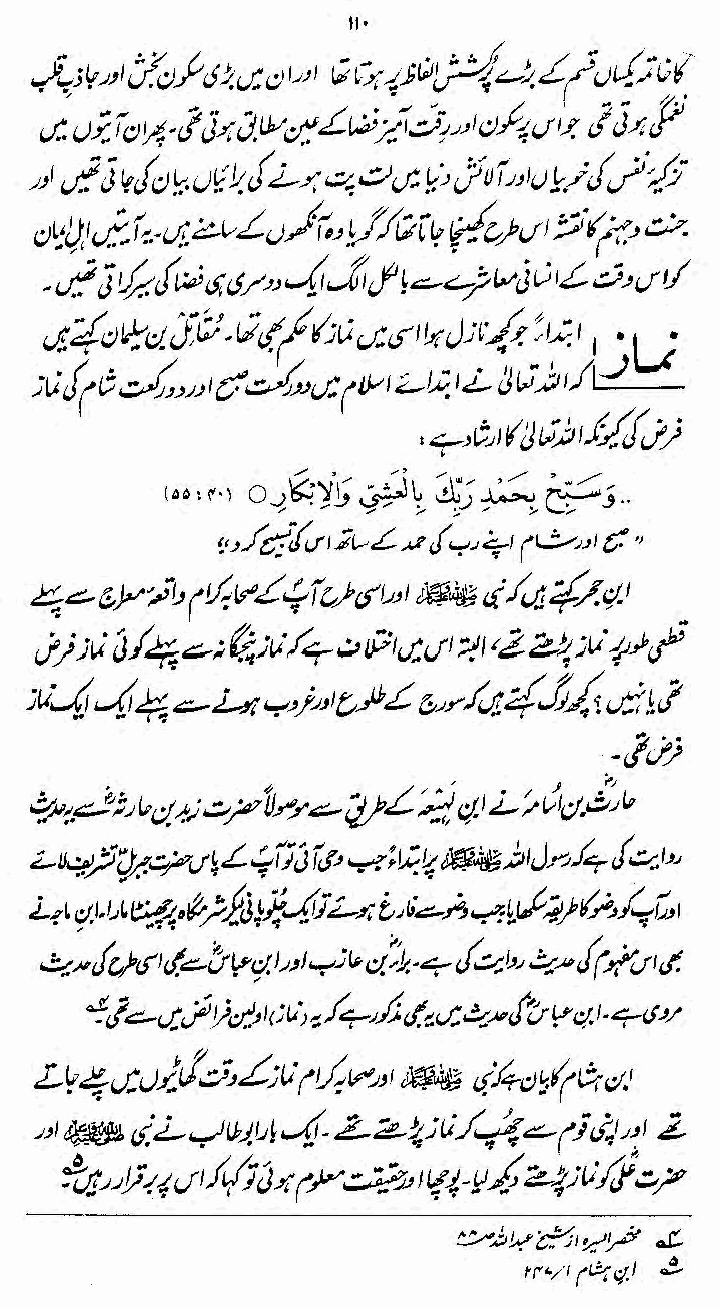 ۱۱۰
کا خاتمہ یکساں قسم کے بڑے پُرکشش الفاظ پر ہوتا تھا اور ان میں بڑی سکون بخش اور جاذبِ قلب
نغمگی ہوتی تھی جو اس پر سکون اور رقّت آمیز فضا کے عین مطابق ہوتی تھی۔ پھر ان آیتوں میں
تزکیۂ نفس کی خوبیاں اور آلائش دنیا میں لت پت ہونے کی برائیاں بیان کی جاتی تھیں اور
جنت و جہنم کا نقشہ اس طرح کھینچا جاتا تھا کہ گویا وہ آنکھوں کے سامنے ہیں۔ یہ آیتیں اہلِ ایمان
کو اس وقت کے انسانی معاشرے سے بالکل الگ ایک دوسری ہی فضا کی سیر کراتی تھیں۔
نماز
ابتداءً جو کچھ نازل ہوا اسی میں نماز کا حکم بھی تھا۔ مُقَاتِلْ بن سلیمان کہتے ہیں
کہ اللہ تعالیٰ نے ابتدائے اسلام میں دو رکعت صبح اور دو رکعت شام کی نماز
فرض کی کیونکہ اللہ تعالیٰ کا ارشاد ہے :
.. وَسَبِّحْ بِحَمْدِ رَبِّكَ بِالْعَشِيِّ وَالْاِبْكَارِ ○ (۵۵:۴۰)
"صبح اور شام اپنے رب کی حمد کے ساتھ اس کی تسبیح کرو۔"
ابن حجر کہتے ہیں کہ نبی ﷺ اور اسی طرح آپؐ کے صحابہ کرام واقعۂ معراج سے پہلے
قطعی طور پر نماز پڑھتے تھے، البتہ اس میں اختلاف ہے کہ نماز پنجگانہ سے پہلے کوئی نماز فرض
تھی یا نہیں؟ کچھ لوگ کہتے ہیں کہ سورج کے طلوع اور غروب ہونے سے پہلے ایک ایک نماز
فرض تھی۔
حارثؒ بن اُسامہ نے ابن لَہِیْعَہ کے طریق سے موصولاً حضرت زید بن حارثہؓ سے یہ حدیث
روایت کی ہے کہ رسول اللہ ﷺ پر ابتداءً جب وحی آئی تو آپؐ کے پاس حضرت جبریلؑ تشریف لائے
اور آپ کو وضو کا طریقہ سکھایا جب وضو سے فارغ ہوئے تو ایک چُلّو پانی لیکر شرمگاہ پر چھینٹا مارا۔ ابن ماجہ نے
بھی اس مفہوم کی حدیث روایت کی ہے۔ براءؓ بن عازب اور ابن عباسؓ سے بھی اسی طرح کی حدیث
مروی ہے۔ ابن عباسؓ کی حدیث میں یہ بھی مذکور ہے کہ یہ (نماز) اولین فرائض میں سے تھی۔ ۴
ابن ہشام کا بیان ہے کہ نبی ﷺ اور صحابہ کرام نماز کے وقت گھاٹیوں میں چلے جاتے
تھے اور اپنی قوم سے چھُپ کر نماز پڑھتے تھے۔ ایک بار ابو طالب نے نبی ﷺ اور
حضرت علیؓ کو نماز پڑھتے دیکھ لیا۔ پوچھا اور حقیقت معلوم ہوئی تو کہا کہ اس پر برقرار رہیں۔ ۵
۴ مختصر السیرہ از شیخ عبداللہ ص ۸۸
۵ ابن ہشام ۲۴۷/۱